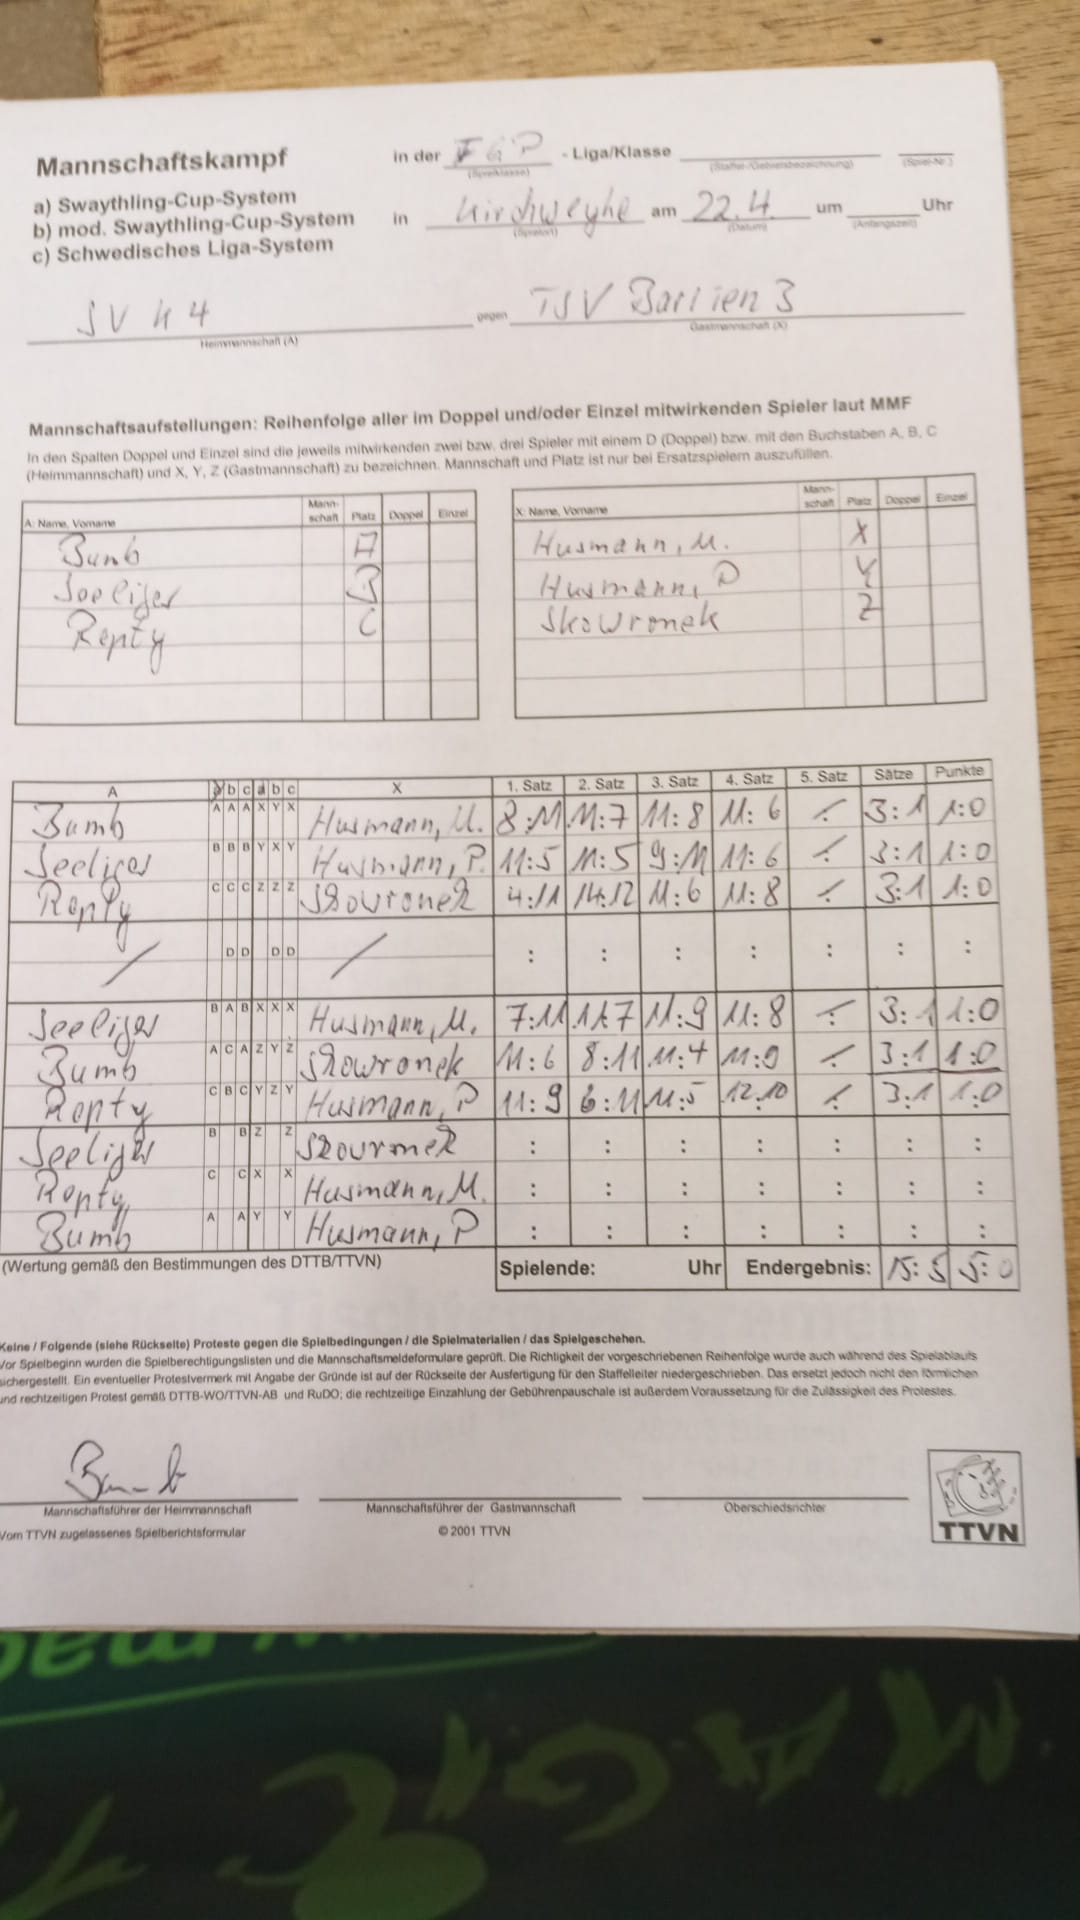 Mannschaftskampf in der FGP - Liga/Klasse
(Spielklasse) (Staffel-/Gebietsbezeichnung) (Spiel-Nr.)
a) Swaythling-Cup-System
b) mod. Swaythling-Cup-System in Kirchweyhe am 22.4. um Uhr
(Spielort) (Datum) (Anfangszeit)
c) Schwedisches Liga-System
SV K 4 gegen TSV Barrien 3
Heimmannschaft (A) Gastmannschaft (X)
Mannschaftsaufstellungen: Reihenfolge aller im Doppel und/oder Einzel mitwirkenden Spieler laut MMF
In den Spalten Doppel und Einzel sind die jeweils mitwirkenden zwei bzw. drei Spieler mit einem D (Doppel) bzw. mit den Buchstaben A, B, C
(Heimmannschaft) und X, Y, Z (Gastmannschaft) zu bezeichnen. Mannschaft und Platz ist nur bei Ersatzspielern auszufüllen.
A: Name, Vorname Mann-schaft Platz Doppel Einzel X: Name, Vorname Mann-schaft Platz Doppel Einzel
Bumb A Husmann, M. X
Seeliger B Husmann, P Y
Repty C Skowronek Z
A b c a b c X 1. Satz 2. Satz 3. Satz 4. Satz 5. Satz Sätze Punkte
Bumb A A A X Y X Husmann, M. 8:11 11:7 11:8 11:6 : 3:1 1:0
Seeliger B B B Y X Y Husmann, P. 11:5 11:5 9:11 11:6 : 3:1 1:0
Repty C C C Z Z Z Skowronek 4:11 14:12 11:6 11:8 : 3:1 1:0
/ D D D D / : : : : : : :
Seeliger B A B X X X Husmann, M. 7:11 11:7 11:9 11:8 : 3:1 1:0
Bumb A C A Z Y Z Skowronek 11:6 8:11 11:4 11:9 : 3:1 1:0
Repty C B C Y Z Y Husmann, P 11:9 6:11 11:5 12:10 : 3:1 1:0
Seeliger B B Z Z Skowronek : : : : : : :
Repty C C X X Husmann, M. : : : : : : :
Bumb A A Y Y Husmann, P : : : : : : :
(Wertung gemäß den Bestimmungen des DTTB/TTVN) Spielende: Uhr Endergebnis: 15:5 5:0
Keine / Folgende (siehe Rückseite) Proteste gegen die Spielbedingungen / die Spielmaterialien / das Spielgeschehen.
Vor Spielbeginn wurden die Spielberechtigungslisten und die Mannschaftsmeldeformulare geprüft. Die Richtigkeit der vorgeschriebenen Reihenfolge wurde auch während des Spielablaufs
sichergestellt. Ein eventueller Protestvermerk mit Angabe der Gründe ist auf der Rückseite der Ausfertigung für den Staffelleiter niedergeschrieben. Das ersetzt jedoch nicht den förmlichen
und rechtzeitigen Protest gemäß DTTB-WO/TTVN-AB und RuDO; die rechtzeitige Einzahlung der Gebührenpauschale ist außerdem Voraussetzung für die Zulässigkeit des Protestes.
Bumb
Mannschaftsführer der Heimmannschaft Mannschaftsführer der Gastmannschaft Oberschiedsrichter
Vom TTVN zugelassenes Spielberichtsformular © 2001 TTVN TTVN